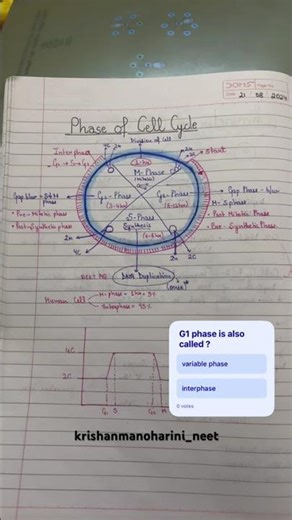 DOMS
Date 21 08 2024
Phase of Cell Cycle
Division of Cell
Interphase
G1 → S → G2
Start
M-Phase
G2-Phase
G1-Phase
S-Phase
Synthesis
Gap b/w
phase
M-S phase
• Pre-Mitotic phase
• Post-Synthetic phase
• Post Mitotic Phase
• Pre-Synthetic Phase
2n
4C
2n
2C
NEXT
DNA Duplication
Human Cell
M-phase =
Interphase = 95%
4C
2C
G1 S G2 M
G1 phase is also
called ?
variable phase
interphase
0 votes
krishanmanoharini_neet